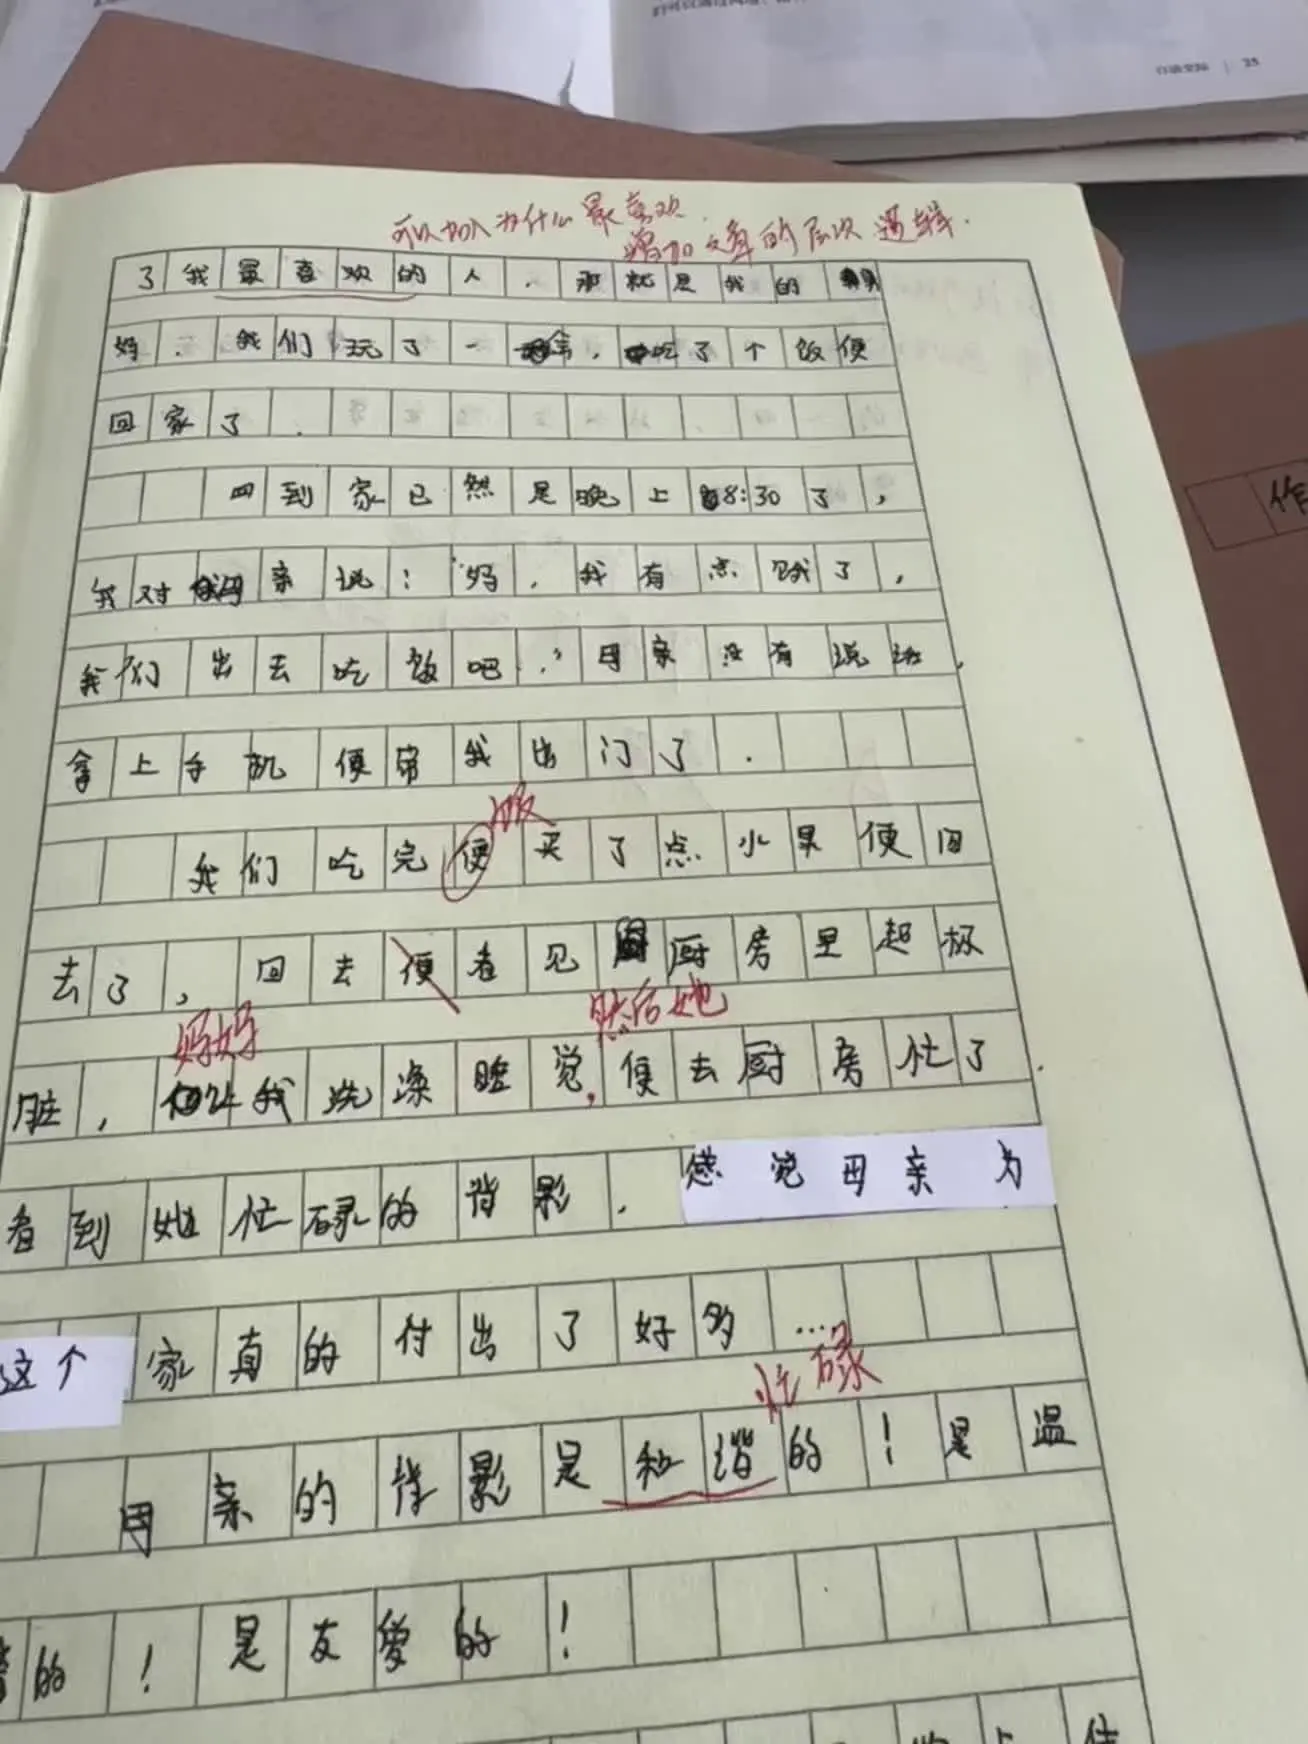 可以加入为什么最喜欢.
增加文章的层次逻辑.
了我最喜欢的人.那就是我的
妈.我们玩了一会,吃了个饭便
回家了.
回到家已然是晚上8:30了,
我对母亲说:"妈,我有点饿了,
我们出去吃饭吧."母亲没有说话,
拿上手机便带我出门了.
饭
我们吃完便买了点水果便回
去了,回去便看见厨房里超极
妈妈
然后她
脏,让我洗澡睡觉,便去厨房忙了.
看到她忙碌的背影,感觉母亲为
这个家真的付出了好多....
忙碌
母亲的背影是和谐的!是温
的!是友爱的!
作